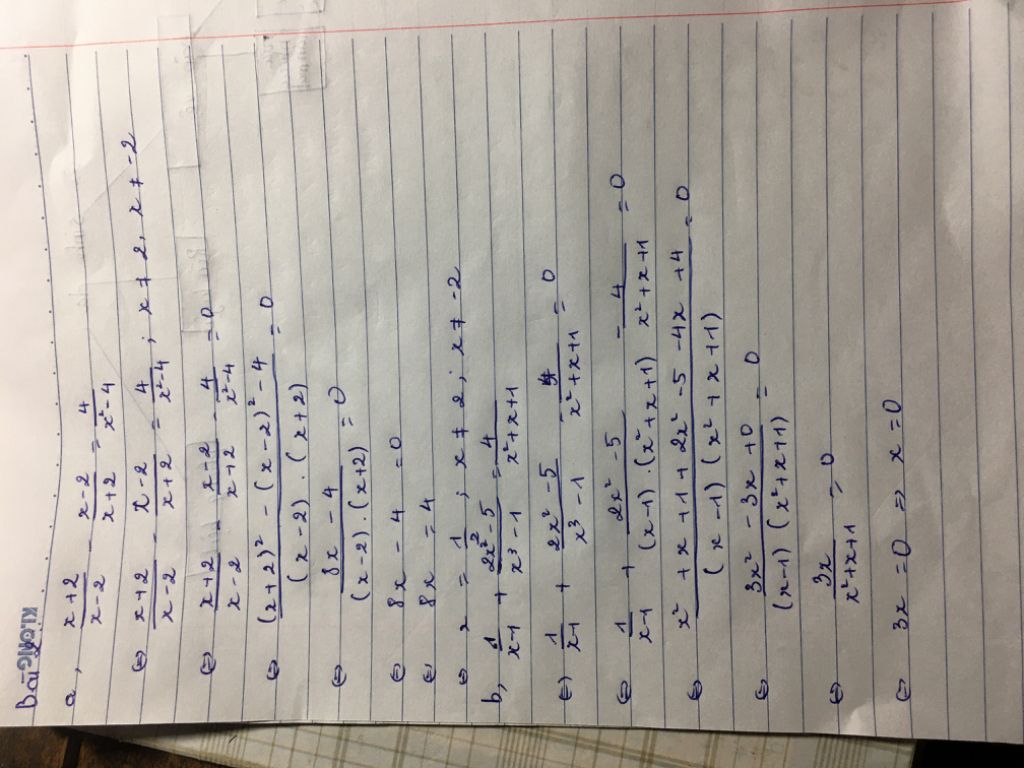 KLONG
bài 2
a, (x+2)/(x-2) - (x-2)/(x+2) = 4/(x²-4)
⇔ (x+2)/(x-2) - (x-2)/(x+2) = 4/(x²-4) ; x ≠ 2, x ≠ -2
⇔ (x+2)/(x-2) - (x-2)/(x+2) - 4/(x²-4) = 0
⇔ ((x+2)² - (x-2)² - 4)/((x-2).(x+2)) = 0
⇔ (8x - 4)/((x-2).(x+2)) = 0
⇔ 8x - 4 = 0
⇔ 8x = 4
⇔ x = 1/2 ; x ≠ 2 ; x ≠ -2
b, 1/(x-1) + (2x²-5)/(x³-1) = 4/(x²+x+1)
⇔ 1/(x-1) + (2x²-5)/(x³-1) - 4/(x²+x+1) = 0
⇔ 1/(x-1) + (2x²-5)/((x-1).(x²+x+1)) - 4/(x²+x+1) = 0
⇔ (x²+x+1+2x²-5-4x+4)/((x-1)(x²+x+1)) = 0
⇔ (3x²-3x+0)/((x-1)(x²+x+1)) = 0
⇔ 3x/(x²+x+1) = 0
⇔ 3x = 0 => x = 0